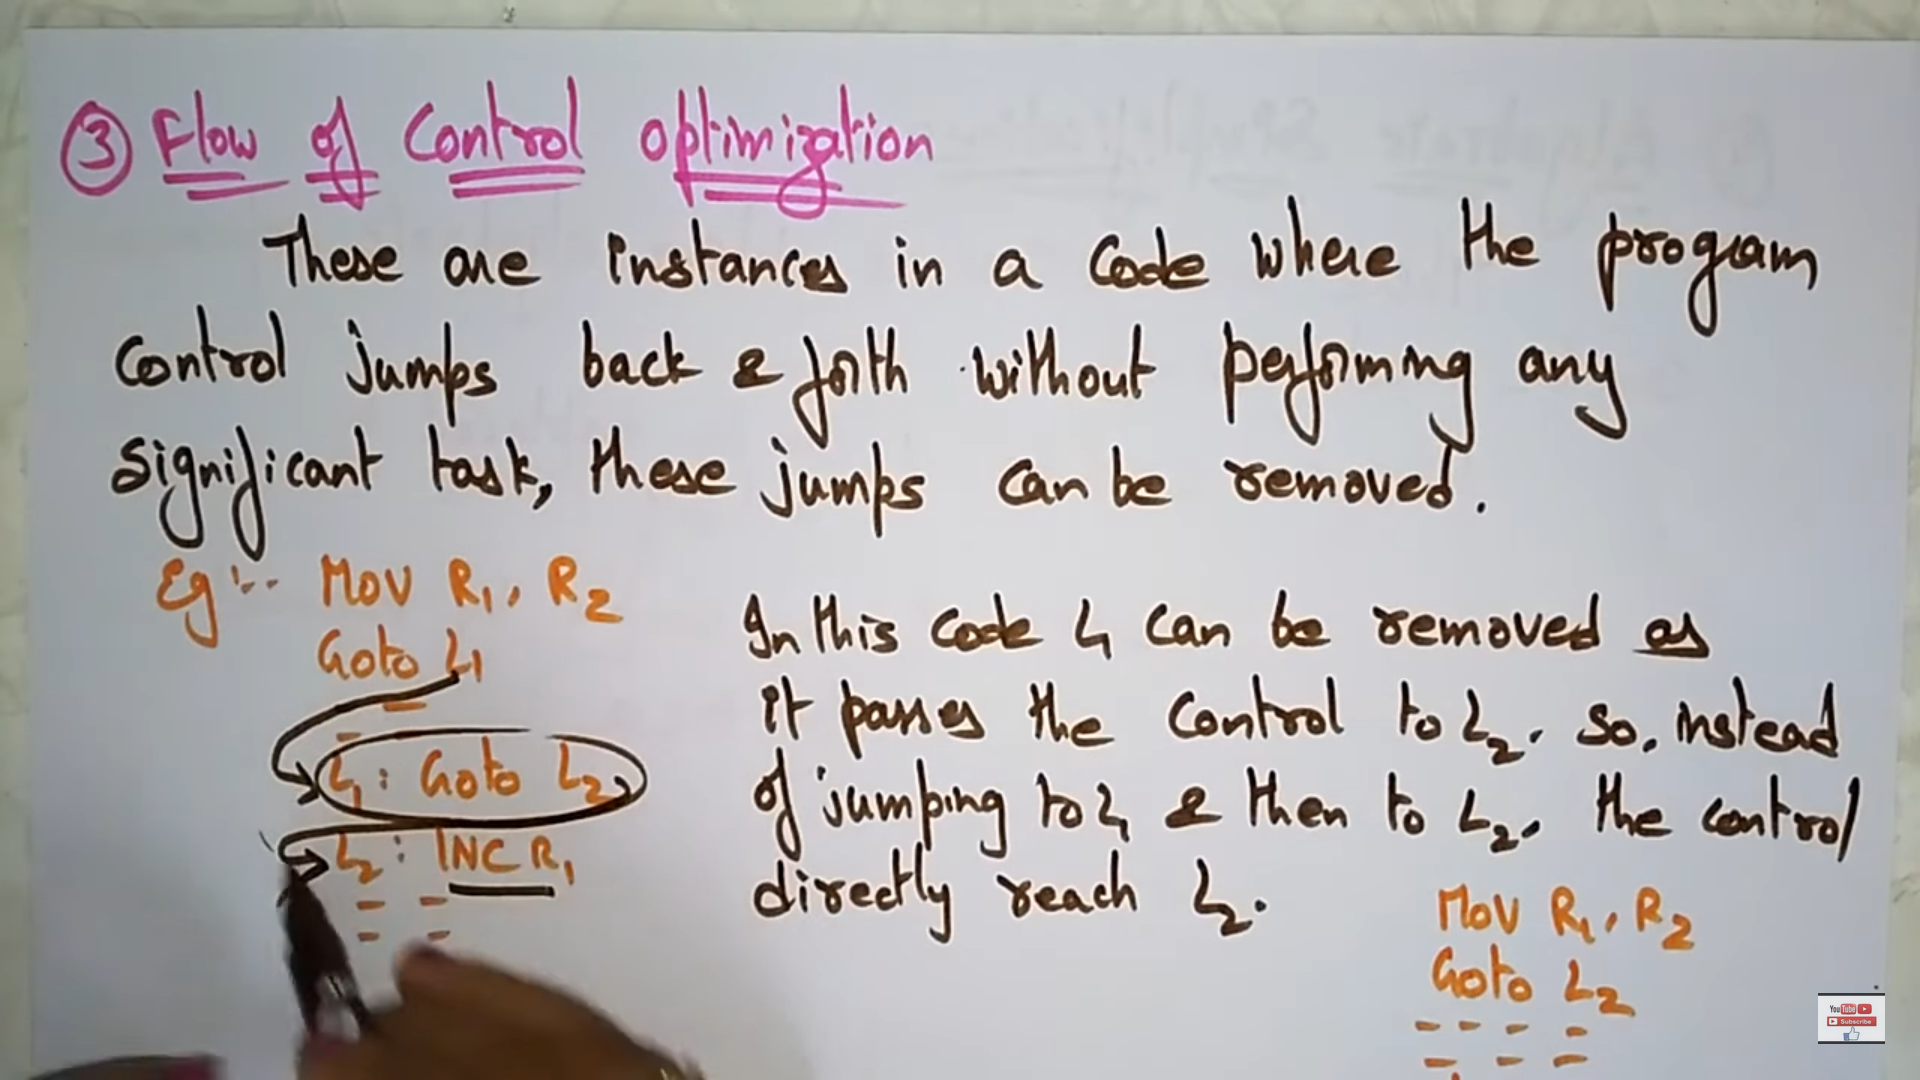 ③ Flow of Control optimization
These are instances in a Code where the program
Control jumps back & forth without performing any
significant task, these jumps can be removed.
Eg:- MOV R1, R2
Goto L1
L1: Goto L2
L2: INC R1
In this code L1 can be removed as
it passes the Control to L2. So, instead
of jumping to L1 & then to L2. the control
directly reach L2.
MOV R1, R2
Goto L2
YouTube
Subscribe